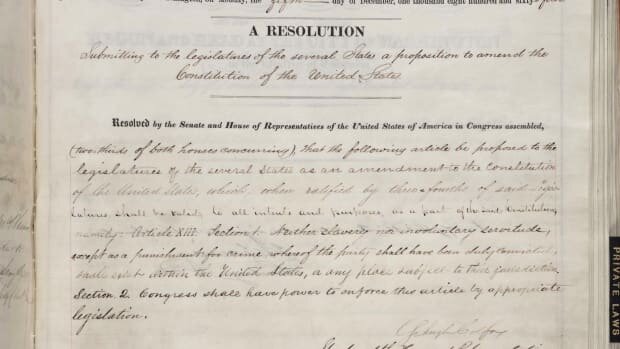 day of December, one thousand eight hundred and sixty-
A RESOLUTION
Submitting to the legislatures of the several States a proposition to amend the
Constitution of the United States
Resolved by the Senate and House of Representatives of the United States of America in Congress assembled,
(two-thirds of both houses concurring), That the following article be proposed to the
legislatures of the several States as an amendment to the Constitution
of the United States, which, when ratified by three-fourths of said Legis-
latures, shall be valid, to all intents and purposes, as a part of the said Constitution,
namely: Article XIII. Section 1. Neither slavery nor involuntary servitude,
except as a punishment for crime whereof the party shall have been duly convicted,
shall exist within the United States, or any place subject to their jurisdiction.
Section 2. Congress shall have power to enforce this article by appropriate
legislation.
PRIVATE LAWS